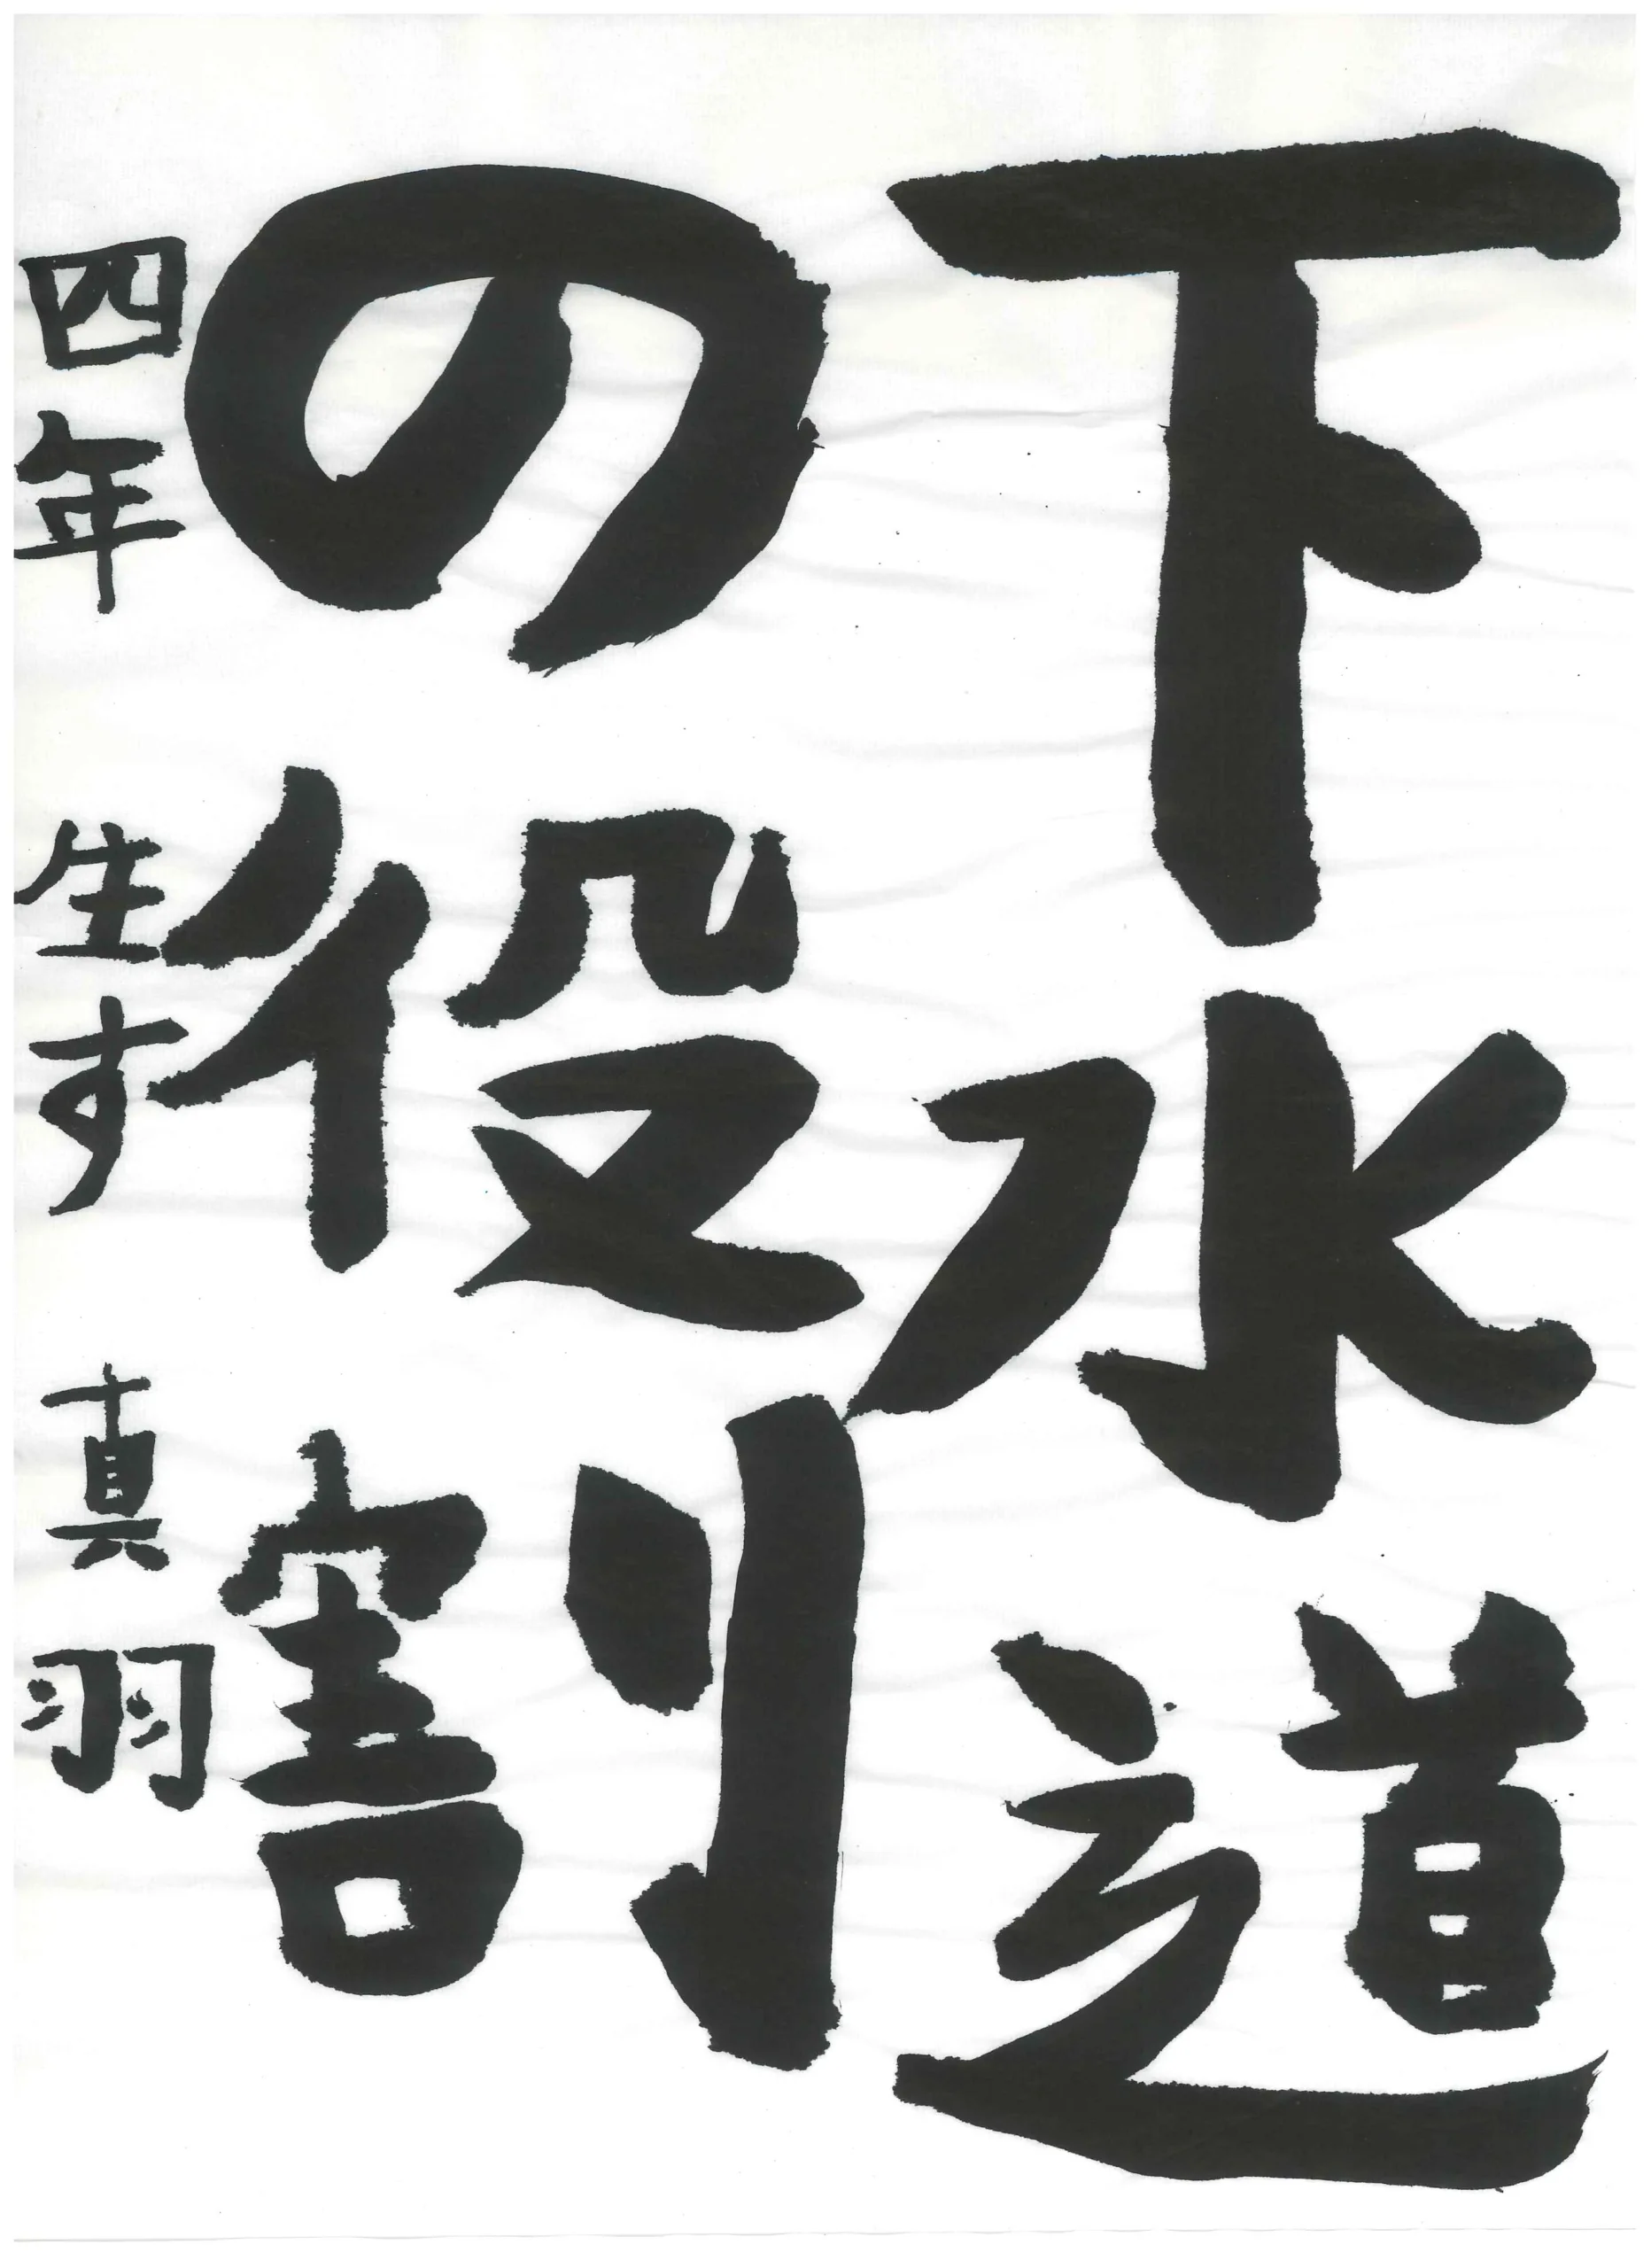 下水道
の役割
四年 生す 真羽